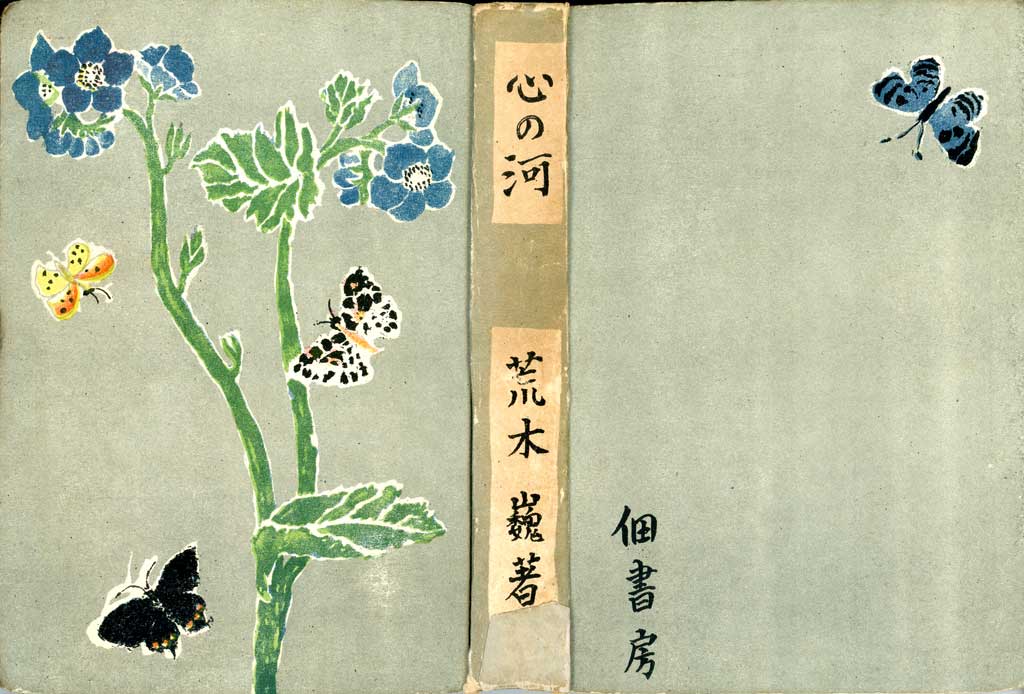 心の河
荒木 巍著
佃書房